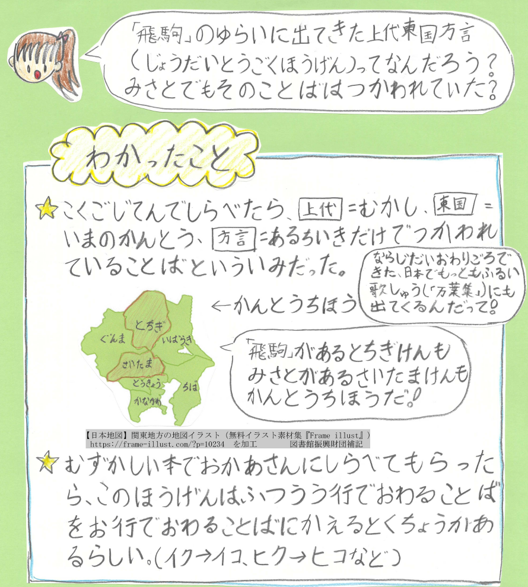 「飛駒」のゆらいに出てきた上代東国方言
(じょうだいとうごくほうげん)ってなんだろう？
みさとでもそのことばはつかわれていた？
わかったこと
こくごじてんでしらべたら、上代=むかし、東国=
いまのかんとう、方言=あるちいきだけでつかわれ
ていることばといういみだった。
ならじだいおわりごろで
きた、日本でもっともふるい
歌しゅう(「万葉集」)にも
出てくるんだって!
←かんとうちほう
とちぎ
ぐんま
いばらき
さいたま
とうきょう
ちば
かながわ
「飛駒」があるとちぎけんも
みさとがあるさいたまけんも
かんとうちほうだ!
【日本地図】関東地方の地図イラスト（無料イラスト素材集『Frame illust』）
https://frame-illust.com/?p=10234 を加工 図書館振興財団補記
むずかしい本でおかあさんにしらべてもらった
ら、このほうげんはふつうう行でおわることば
をお行でおわることばにかえるとくちょうがあ
るらしい。(イク→イコ、ヒク→ヒコなど)